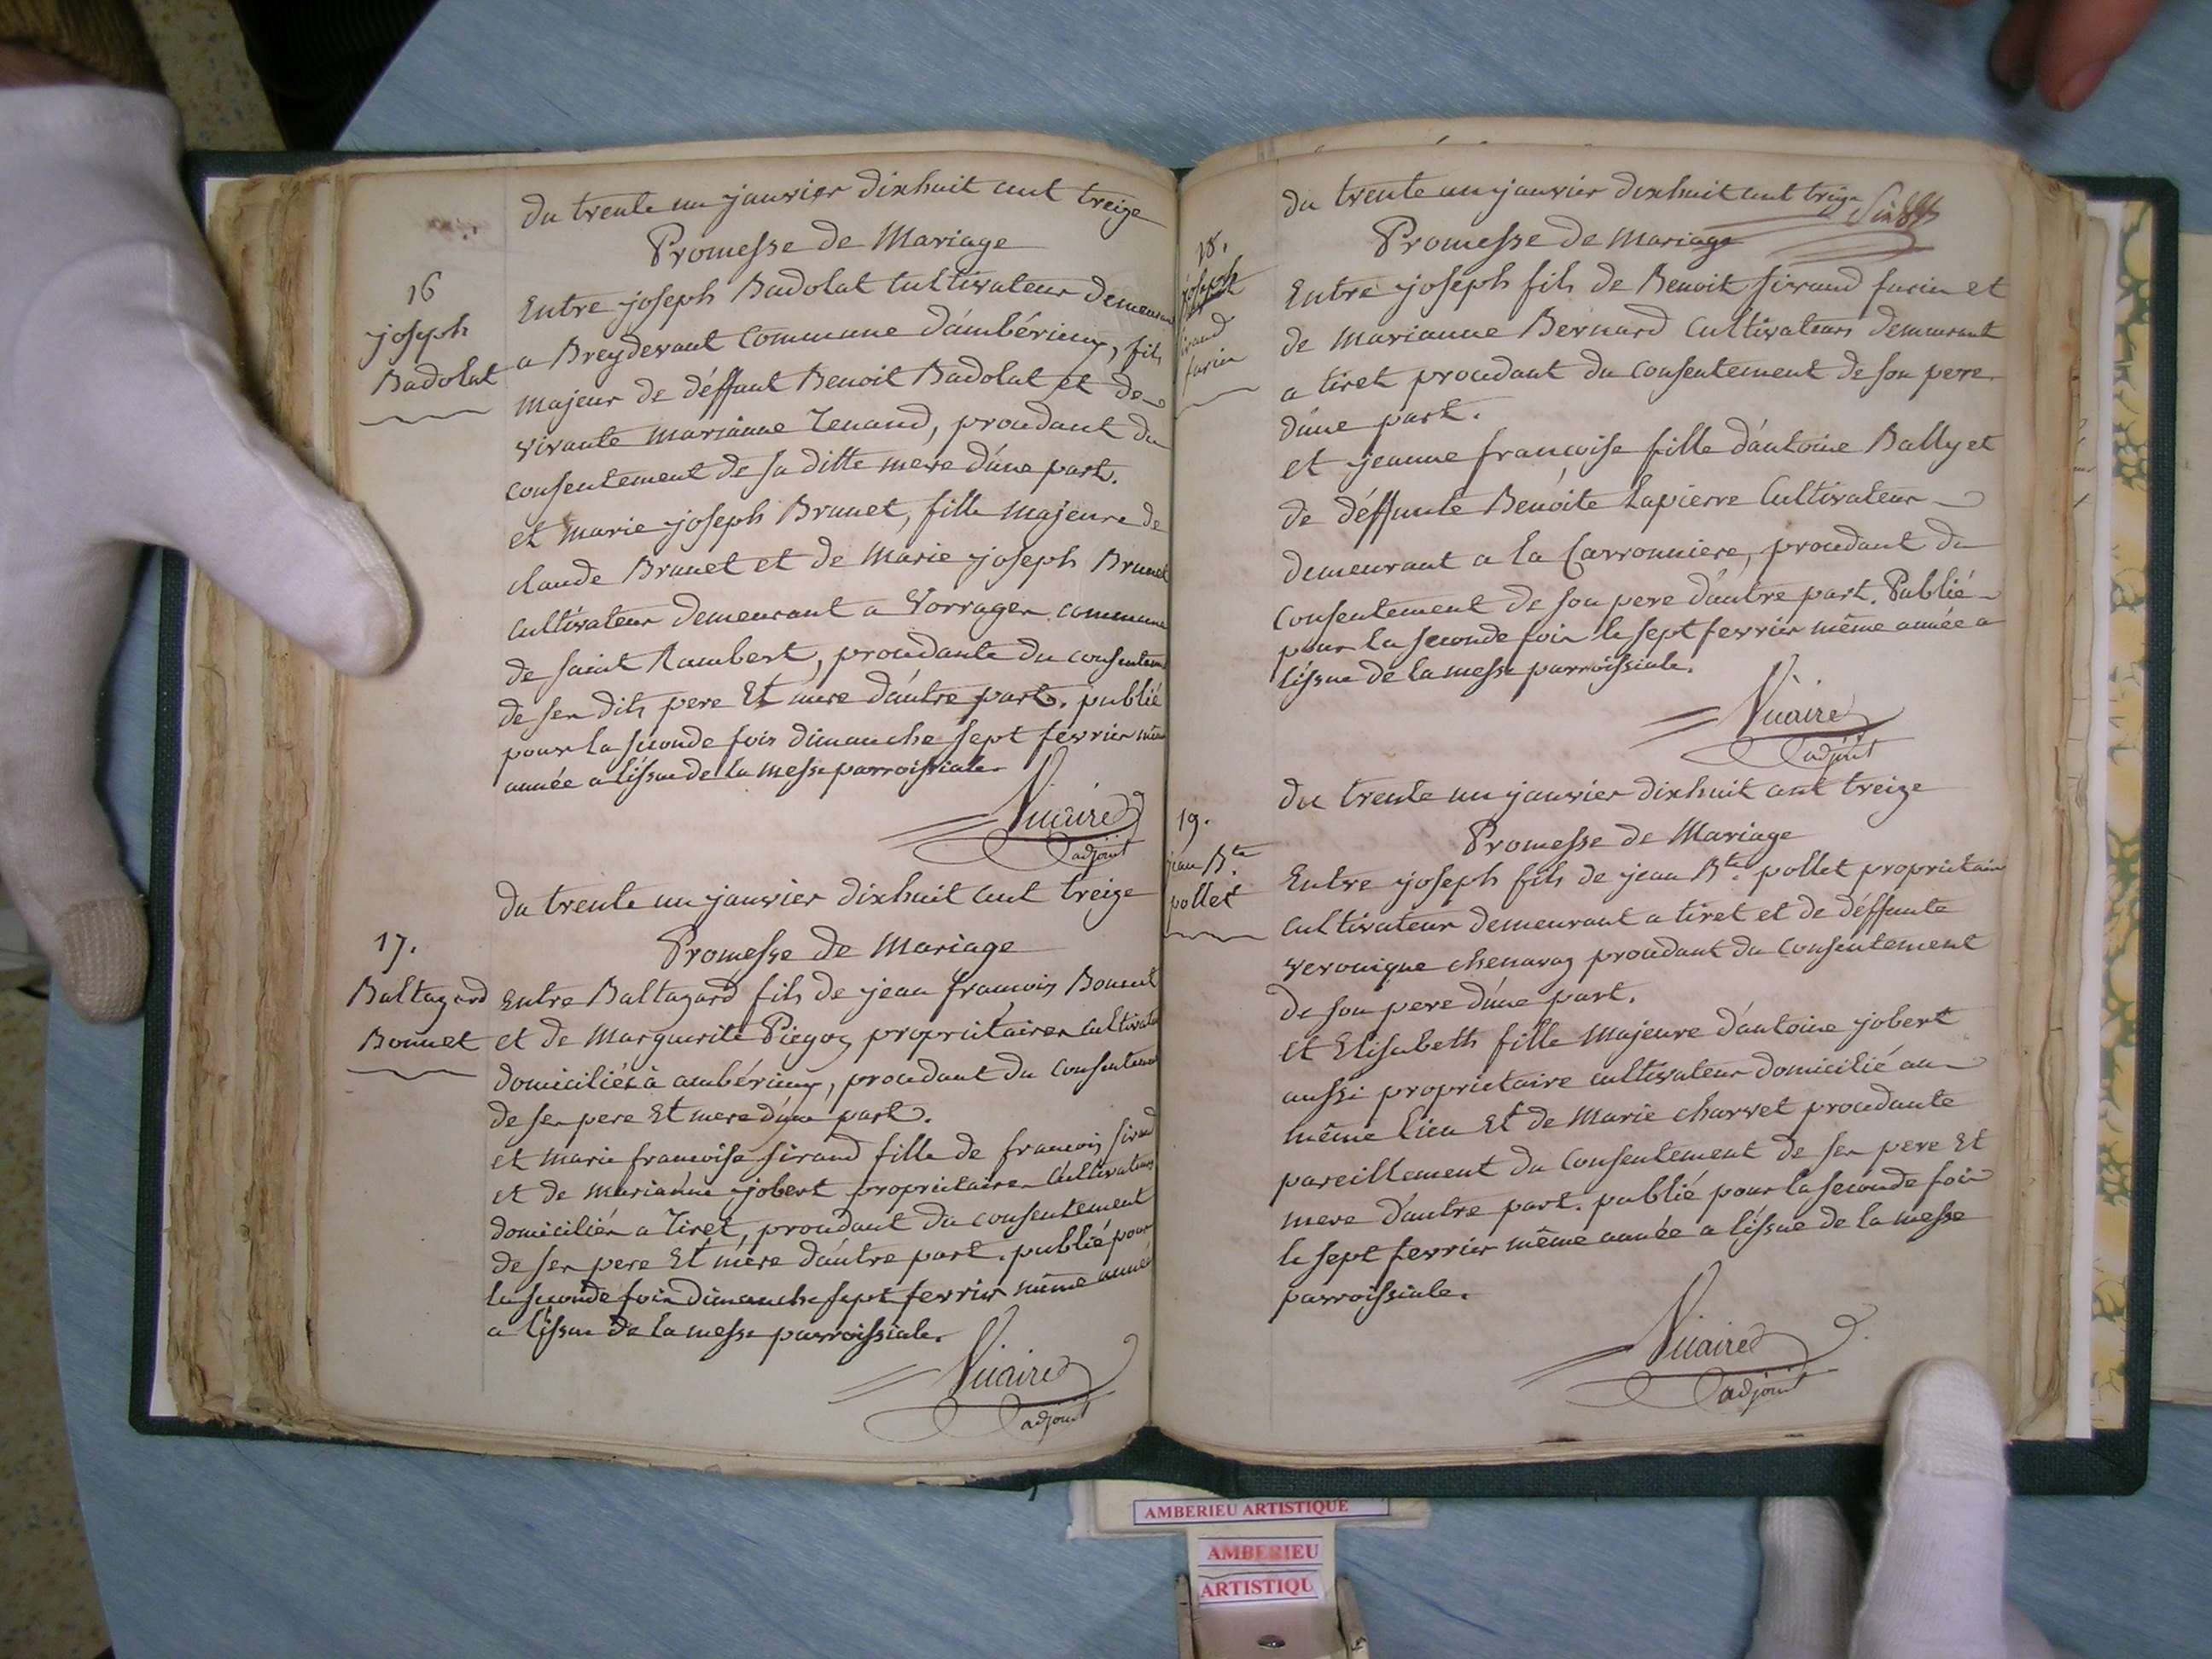 du trente un janvier dixhuit cent treize
Promesse de Mariage
16
joseph
Badolat
Entre joseph Badolat Cultivateur demeurant
a Breydevant Commune d'ambérieux, fils
majeur de déffunt Benoit Badolat et de
vivante marianne Tenand, procédant du
consentement de sa ditte mere d'une part.
et marie joseph Brunet, fille majeure de
claude Brunet et de Marie joseph Brunet
cultivateur demeurant a Vorrages commune
de saint Rambert, procédante du consentem
de ses dits pere Et mere d'autre part. publié
pour la seconde fois dimanche sept fevrier même
année a l'issue de la messe parroissiale.
Vicaire
adjoint
du trente un janvier dixhuit cent treize
17.
Promesse de Mariage
Baltazard
Bonnet
Entre Baltazard fils de jean françois Bonnet
et de Marguerite Piegoz propriétaires Cultivate
domiciliés à ambérieux, procédant du Consentement
de ses pere Et mere d'une part.
et marie françoise sirand fille de françois sirand
et de marianne jobert propriétaires Cultivateurs
domiciliés a Tiret, procédant du consentement
de ses pere Et mère d'autre part. publié pour
la seconde fois dimanche sept fevrier même année
a l'issue de la messe parroissiale.
Vicaire
adjoint
du trente un janvier dixhuit cent treize
Promesse de mariage
18.
joseph
sirand
furin
Entre joseph fils de Benoit sirand furin et
de marianne Bernard Cultivateurs demeurant
a tiret procédant du consentement de son pere
d'une part.
et jeanne françoise fille d'antoine Bally et
de déffunte Benoite Lapierre Cultivateur
demeurant a la Carronniere, procédant du
consentement de son pere d'autre part. Publié
pour la seconde fois le sept fevrier même année a
l'issue de la messe parroissiale.
Vicaire
adjoint
du trente un janvier dixhuit cent treize
19.
Promesse de Mariage
jean Bte
pollet
Entre joseph fils de jean Bte pollet propriétaire
cultivateur demeurant a tiret et de déffunte
veronique chenavaz procédant du consentement
de son pere d'une part.
et Elisabeth fille majeure d'antoine jobert
aussi propriétaire cultivateur domicilié au
même lieu Et de Marie charvet procédante
pareillement du Consentement de ses pere Et
mere d'autre part. publié pour la seconde fois
le sept fevrier même année a l'issue de la messe
parroissiale.
Vicaire
adjoint
AMBERIEU ARTISTIQUE
AMBERIEU
ARTISTIQU